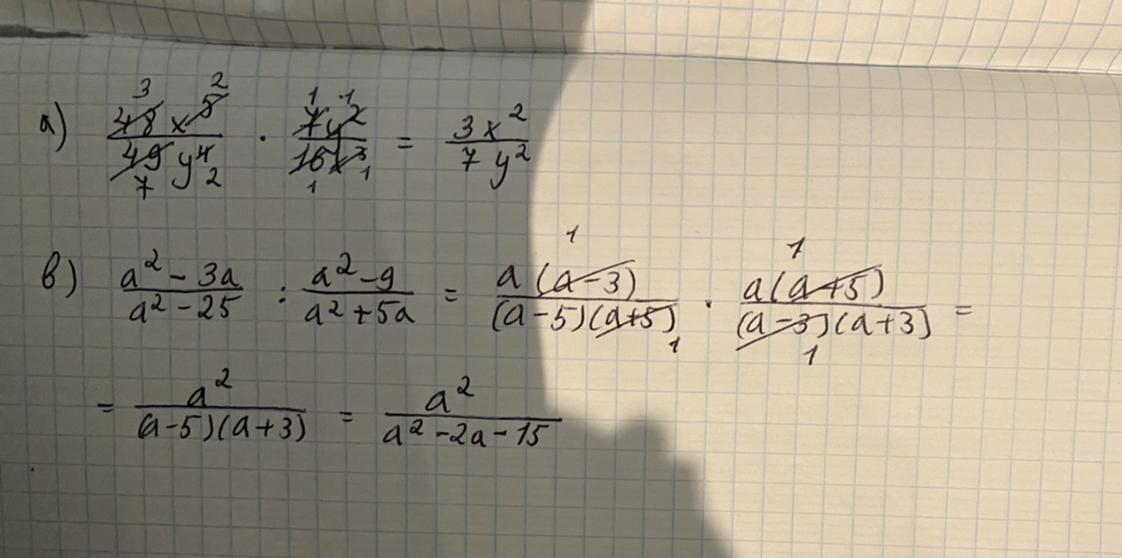 а) 48x^5/49y^4 · 7y^2/16x^3 = 3x^2/7y^2
в) a^2-3a/a^2-25 : a^2-9/a^2+5a = a(a-3)/(a-5)(a+5) · a(a+5)/(a-3)(a+3) =
= a^2/(a-5)(a+3) = a^2/a^2-2a-15